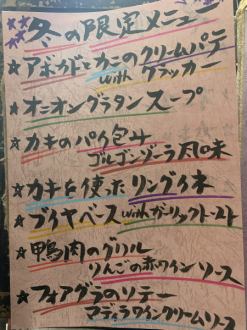 冬の限定メニュー
★アボカドとカニのクリームパテ
with クラッカー
★オニオングラタンスープ
★カキのパイ包み
ゴルゴンゾーラ風味
★カキを使ったリングイネ
★ブイヤベース withガーリックトースト
★鴨肉のグリル
りんごの赤ワインソース
★フォアグラのソテー
マディラワインクリームソース